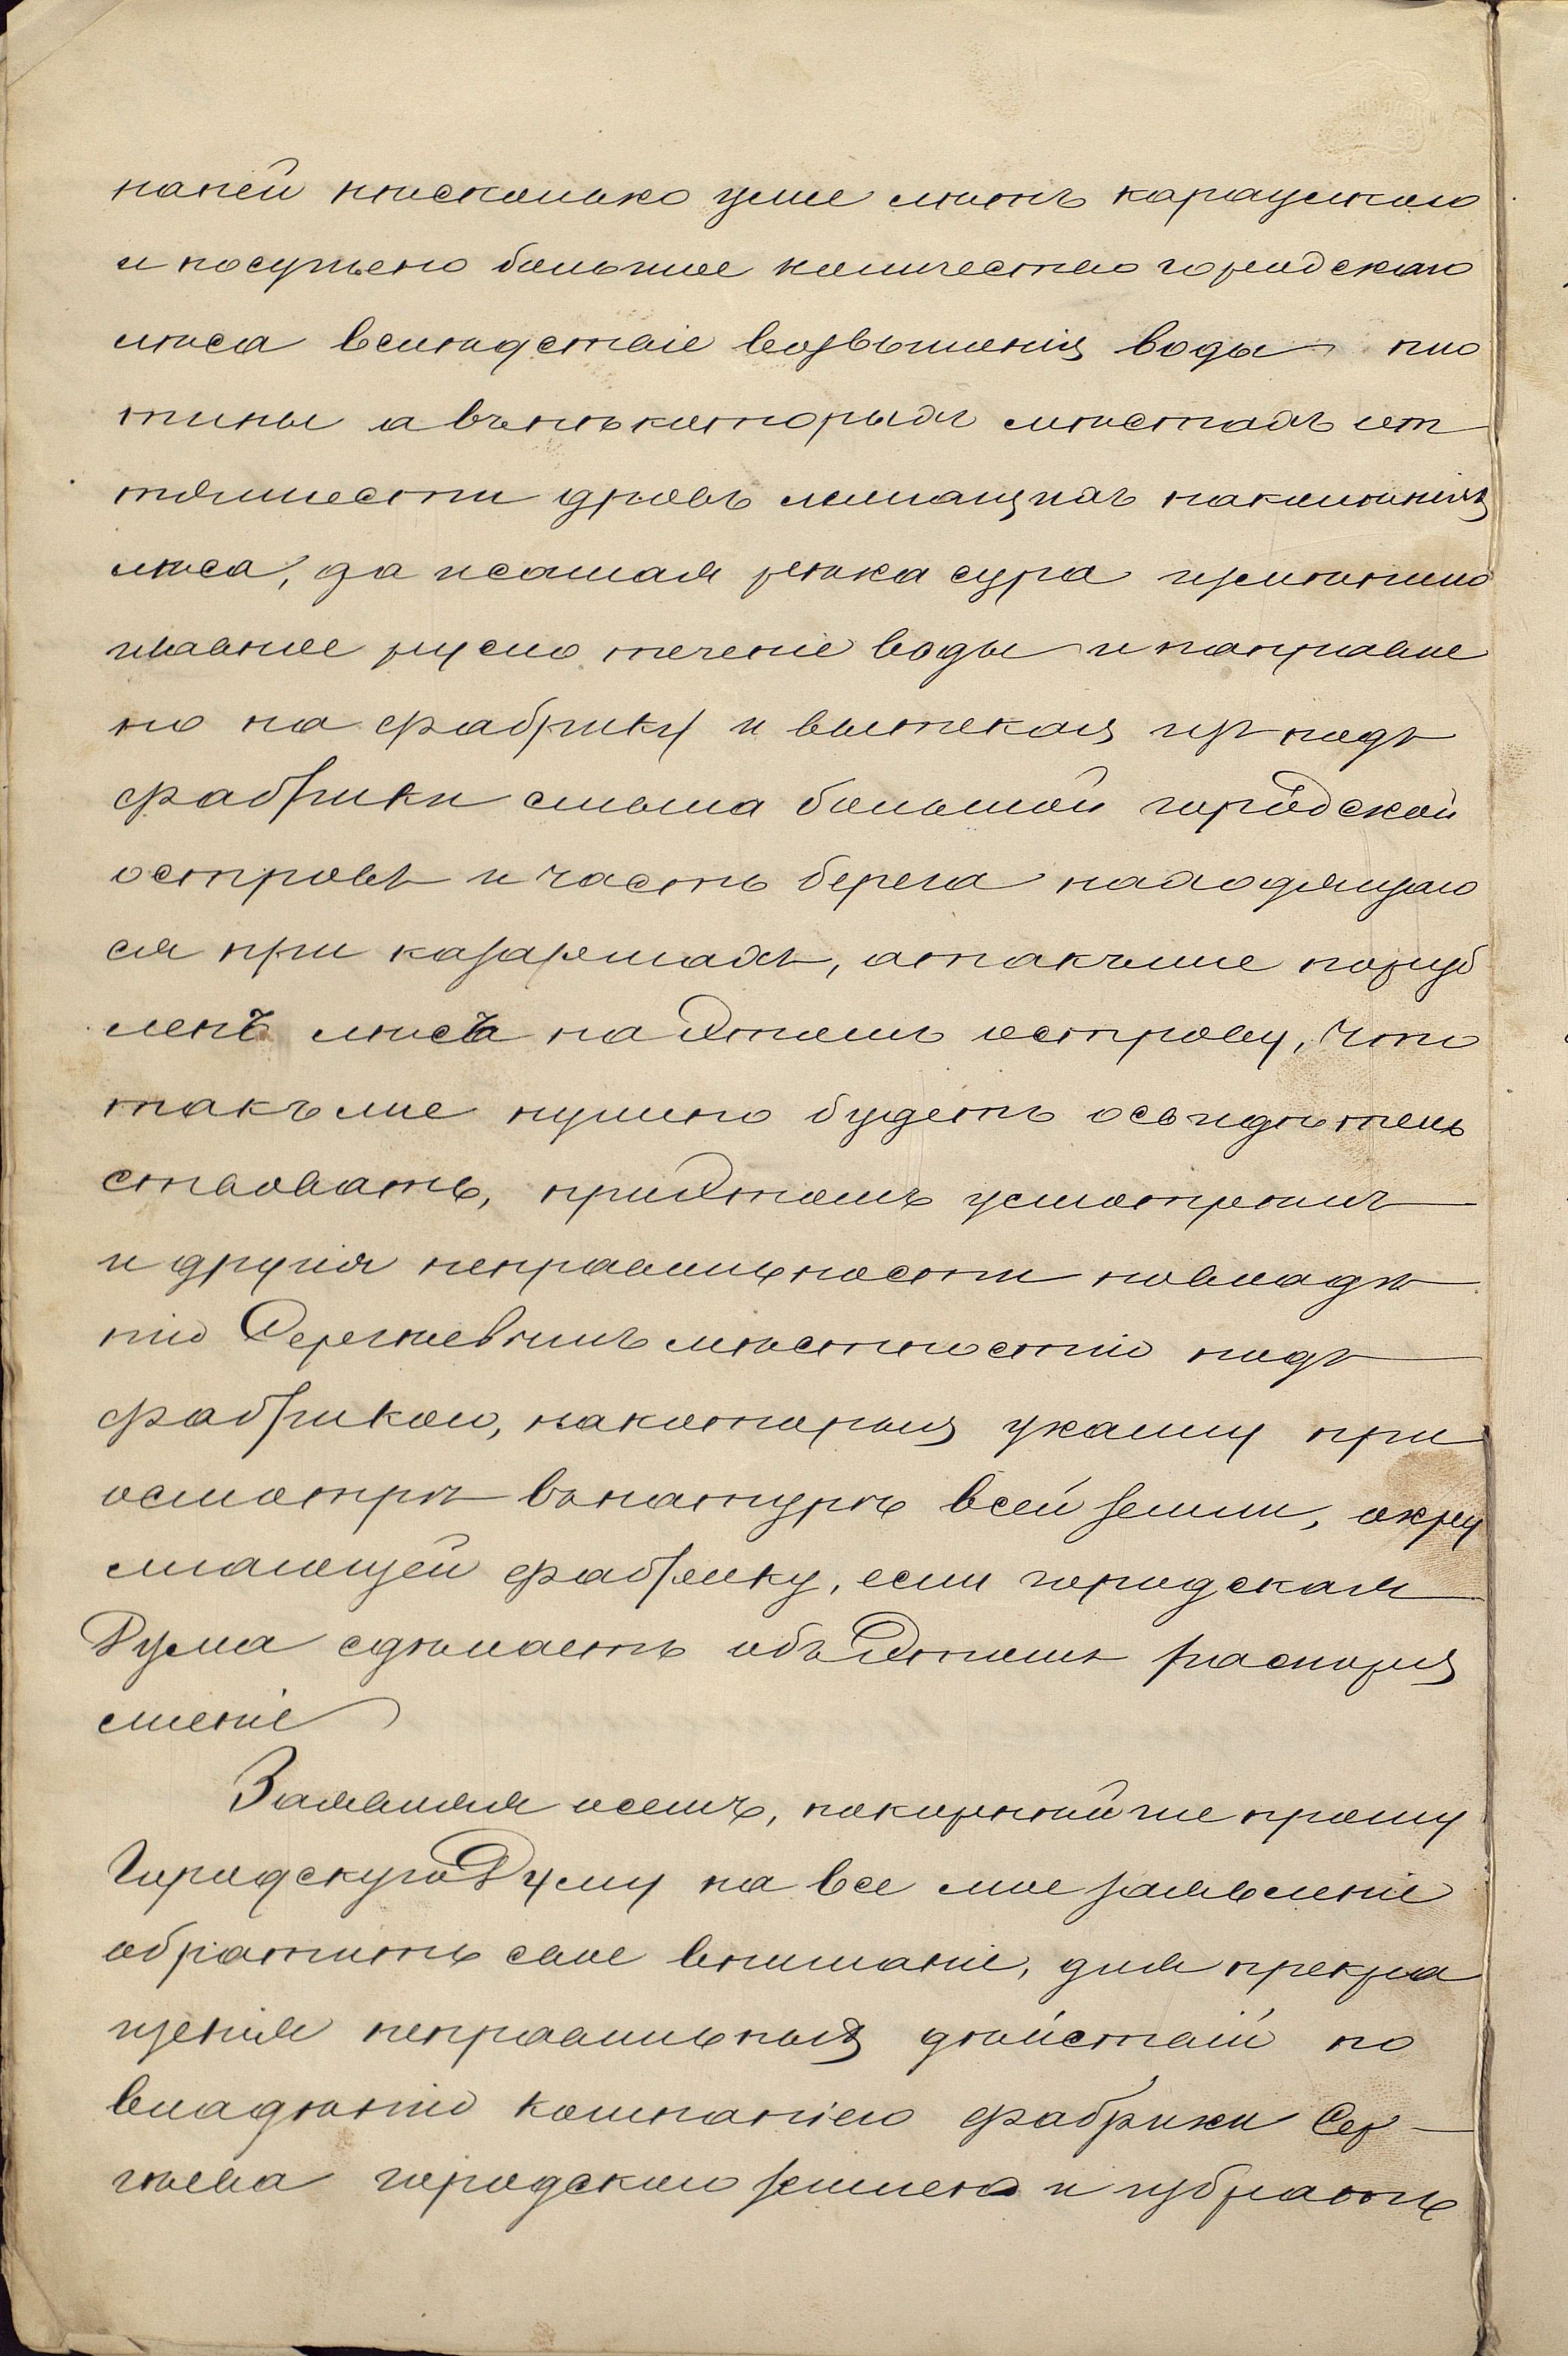 наней нѣсколько уже лѣтъ караулкою
и посушено большое количество городскаго
лѣса вслѣдствіе возвышенія воды пло
тины а въ нѣкоторыхъ мѣстахъ от
тяжести дровъ лежащихъ наколеніяхъ
лѣса, да исамая рѣка сура измѣнило
главное русло теченіе воды и направле
но на фабрику и вытекая изъ подъ
фабрики смыла большой городской
островъ и часть берега находящаго
ся при казармахъ, атакъже поруб
ленъ лѣсъ на Этомъ острову, что
такъ же нужно будетъ освидѣтель
ствовать, приЭтомъ усмотрѣть
и другія неправильности повладѣ
нію Сергѣевымъ мѣстностію подъ
фабрикою, накоторыя укажу при
осмотрѣ внатурѣ всей земли, окру
жающей фабрику, если городская
Дума сдѣлаетъ объЭтомъ распоря
женіе
Заявляя осемъ, покорнѣйше прошу
Городскую Думу на все мое заявленіе
обратить свое вниманіе, для прекра
щенія неправильныхъ дѣйствій по
владѣнію компаніею фабрики Сер-
гѣева городскою землею и избрать